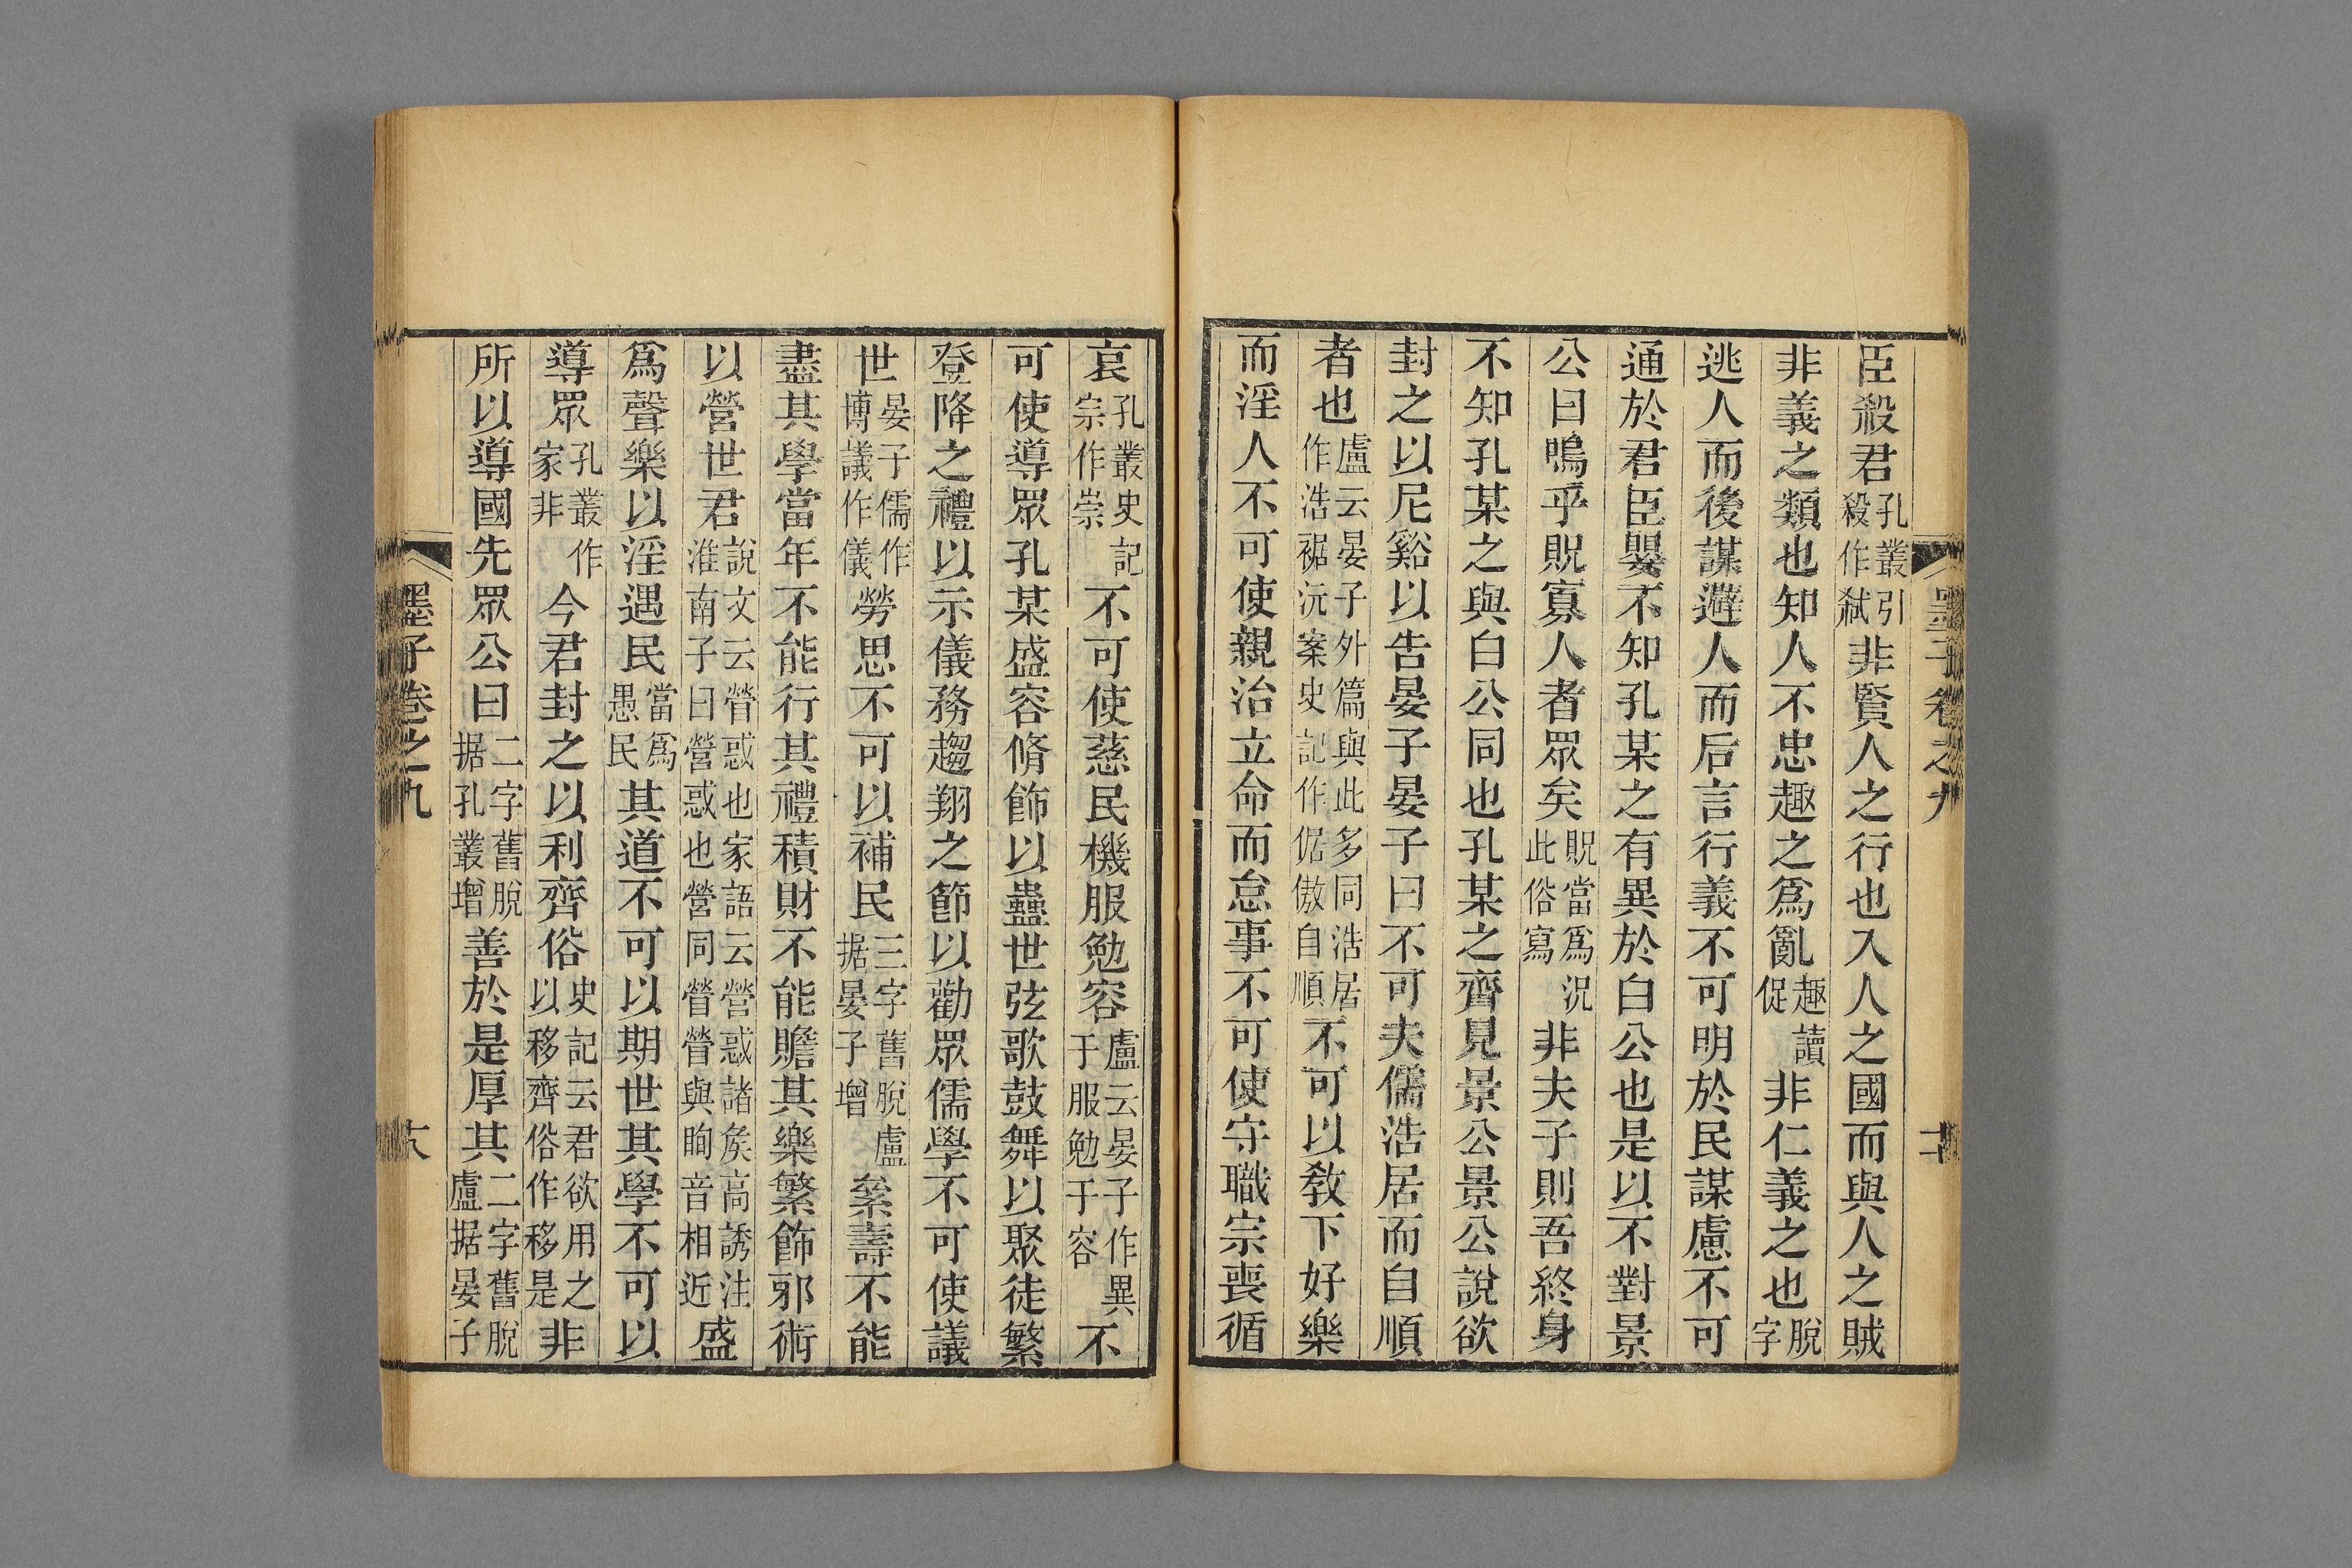 臣殺君孔叢引殺作弑非賢人之行也入人之國而與人之賊
非義之類也知人不忠趣之爲亂趣讀促非仁義之也脫字
逃人而後謀避人而后言行義不可明於民謀慮不可
通於君臣嬰不知孔某之有異於白公也是以不對景
公曰嗚乎貺寡人者眾矣貺當爲況此俗寫非夫子則吾終身
不知孔某之與白公同也孔某之齊見景公景公說欲
封之以尼谿以告晏子晏子曰不可夫儒浩居而自順
者也盧云晏子外篇與此多同浩居作浩裾沅案史記作倨傲自順不可以教下好樂
而淫人不可使親治立命而怠事不可使守職宗喪循
哀孔叢史記宗作崇不可使慈民機服勉容盧云晏子作異于服勉于容不
可使導眾孔某盛容脩飾以蠱世弦歌鼓舞以聚徒繁
登降之禮以示儀務趨翔之節以勸眾儒學不可使議
世晏子儒作博議作儀勞思不可以補民三字舊脫盧据晏子增絫壽不能
盡其學當年不能行其禮積財不能贍其樂繁飾邪術
以營世君說文云營惑也家語云營惑諸矦高誘注淮南子曰營惑也營同㽦㽦與眴音相近盛
爲聲樂以淫遇民當爲愚民其道不可以期世其學不可以
導眾孔叢作家非今君封之以利齊俗史記云君欲用之以移齊俗作移是非
所以導國先眾公曰二字舊脫据孔叢增善於是厚其二字舊脫盧据晏子
墨子卷之九